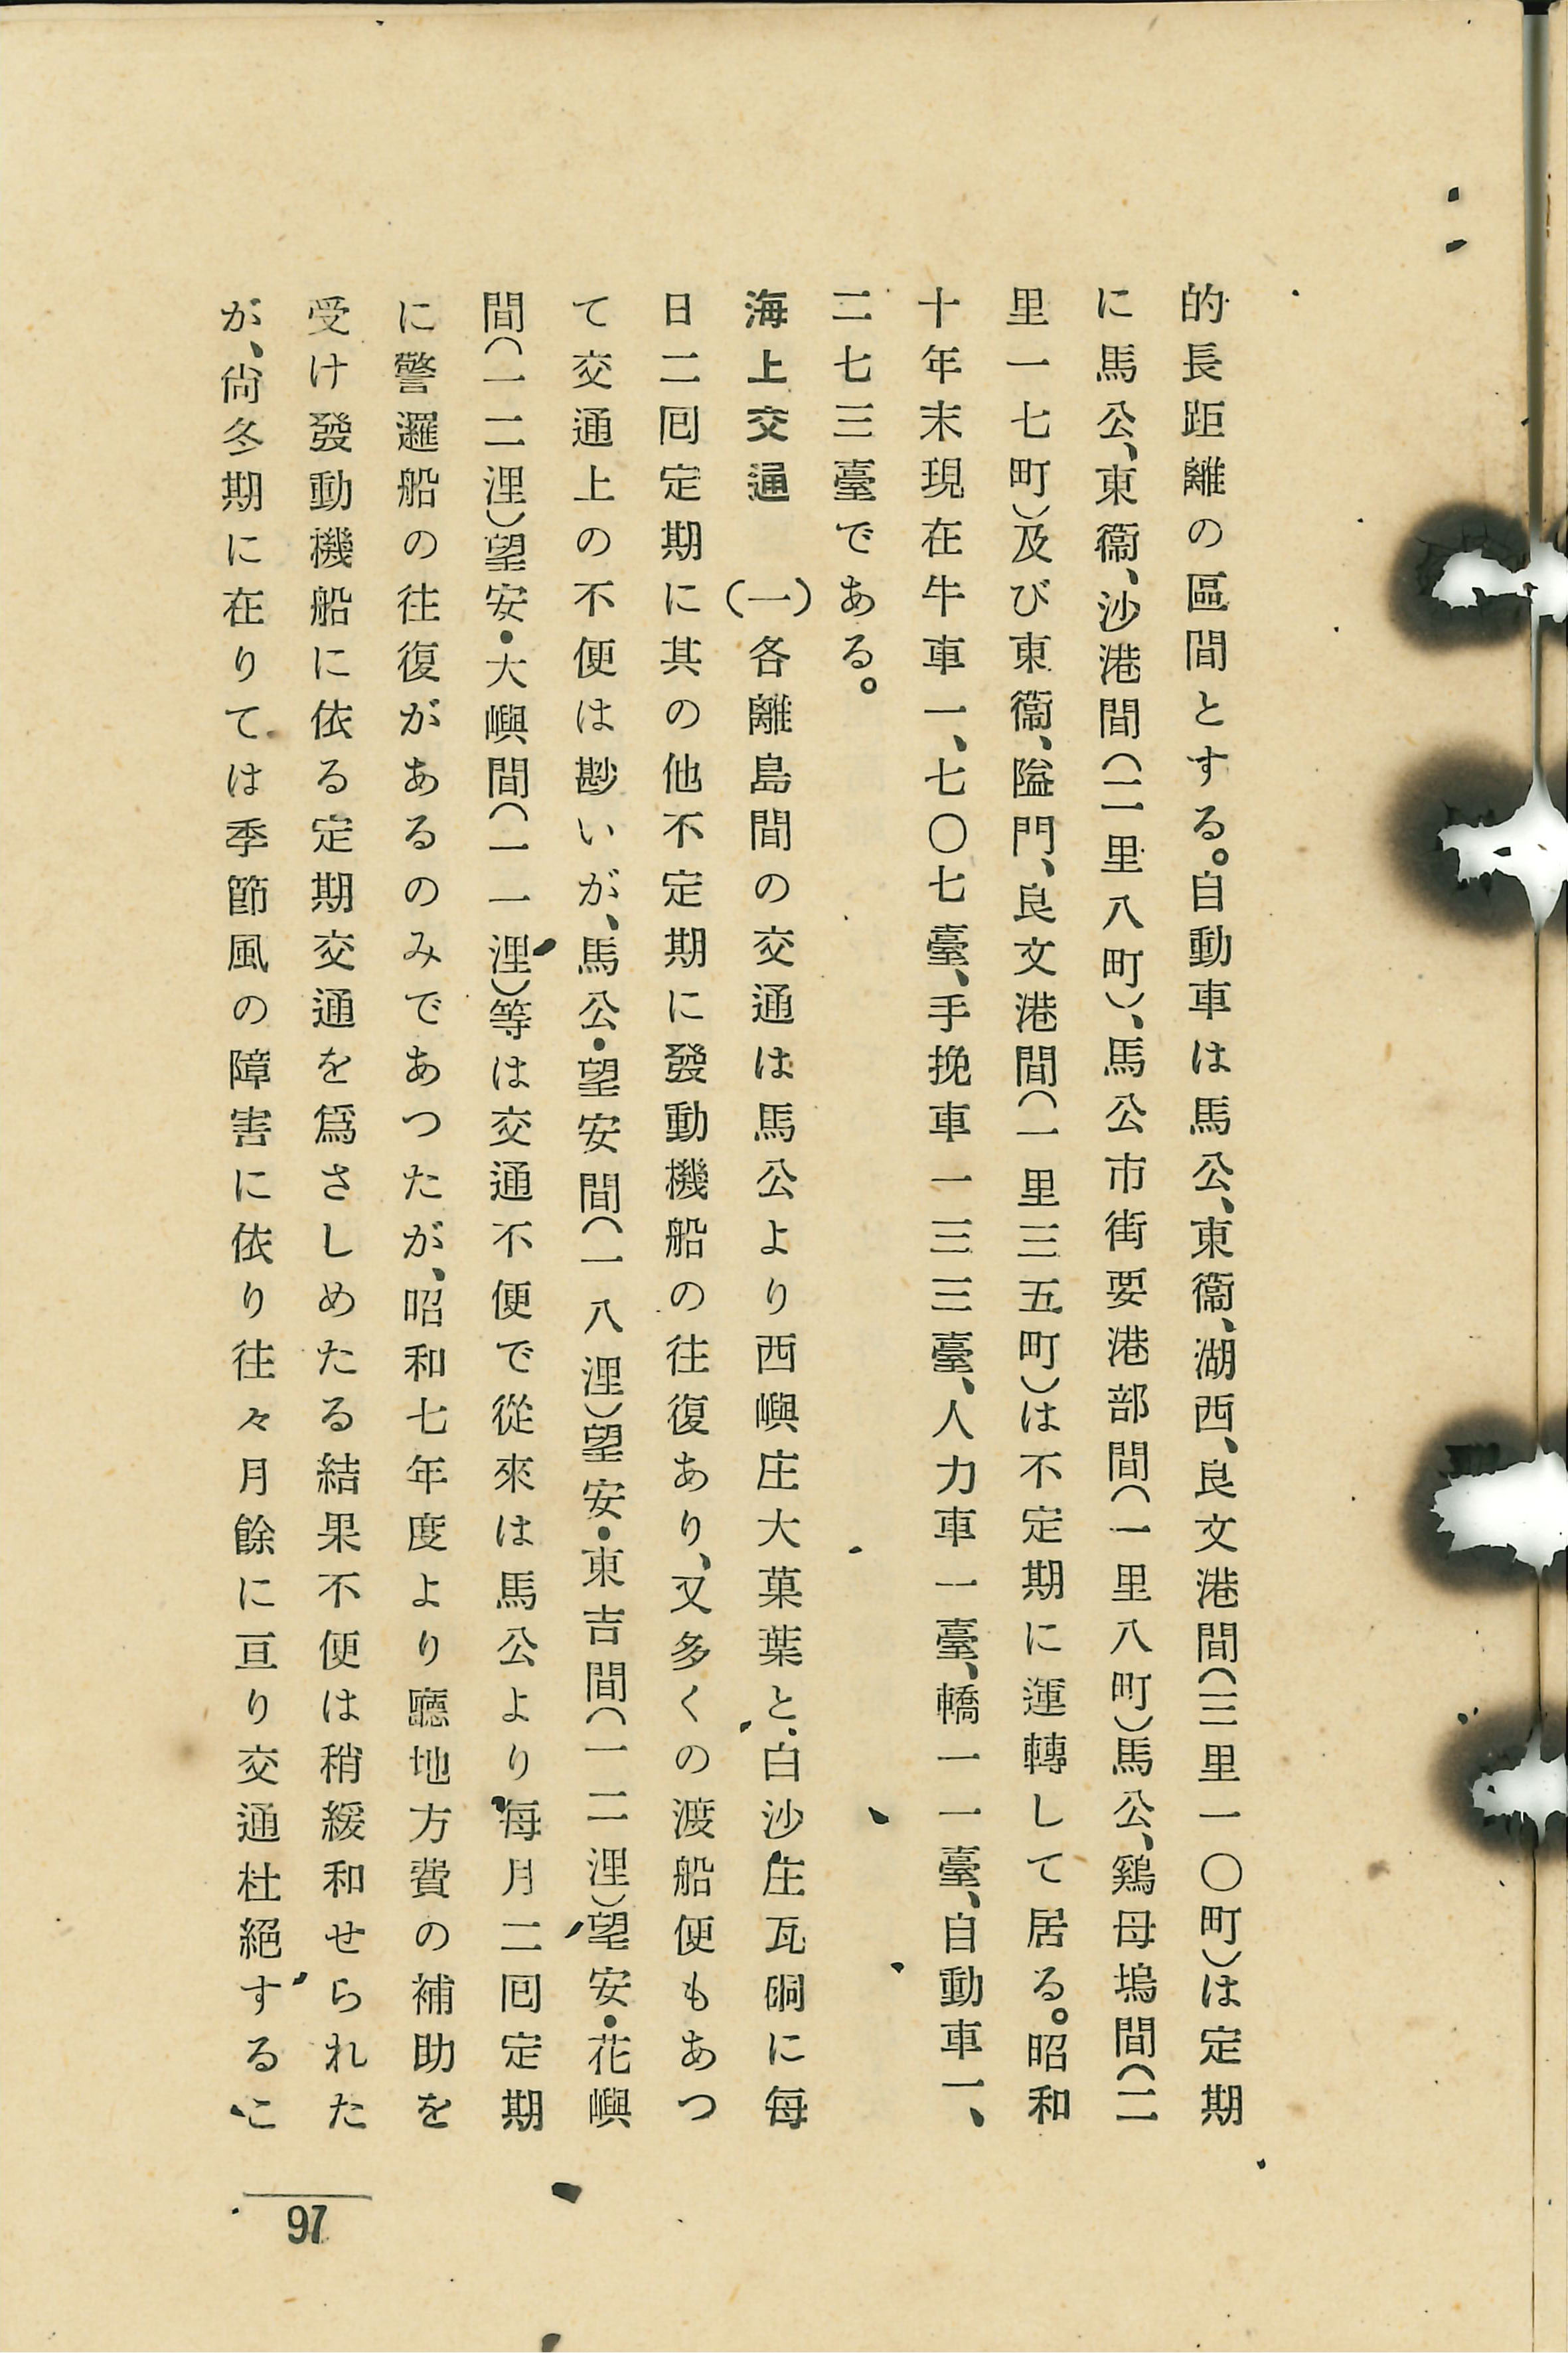 的長距離の區間とする。自動車は馬公、東衞、湖西、良文港間(三里一〇町)は定期
に馬公、東衞、沙港間(二里八町)、馬公市街要港部間(一里八町)馬公、鷄母塢間(二
里一七町)及び東衞、隘門、良文港間(一里三五町)は不定期に運轉して居る。昭和
十年末現在牛車一、七〇七臺、手挽車一三三臺、人力車一臺、轎一一臺、自動車一、
二七三臺である。
海上交通　(一)各離島間の交通は馬公より西嶼庄大菓葉と、白沙庄瓦硐に每
日二囘定期に其の他不定期に發動機船の往復あり、又多くの渡船便もあつ
て交通上の不便は尠いが、馬公・望安間(一八浬)望安・東吉間(一二浬)望安・花嶼
間(一二浬)望安・大嶼間(一一浬)等は交通不便で從來は馬公より每月二囘定期
に警邏船の往復があるのみであつたが、昭和七年度より廳地方費の補助を
受け發動機船に依る定期交通を爲さしめたる結果不便は稍緩和せられた
が、尙冬期に在りては季節風の障害に依り往々月餘に亘り交通杜絕するこ
97